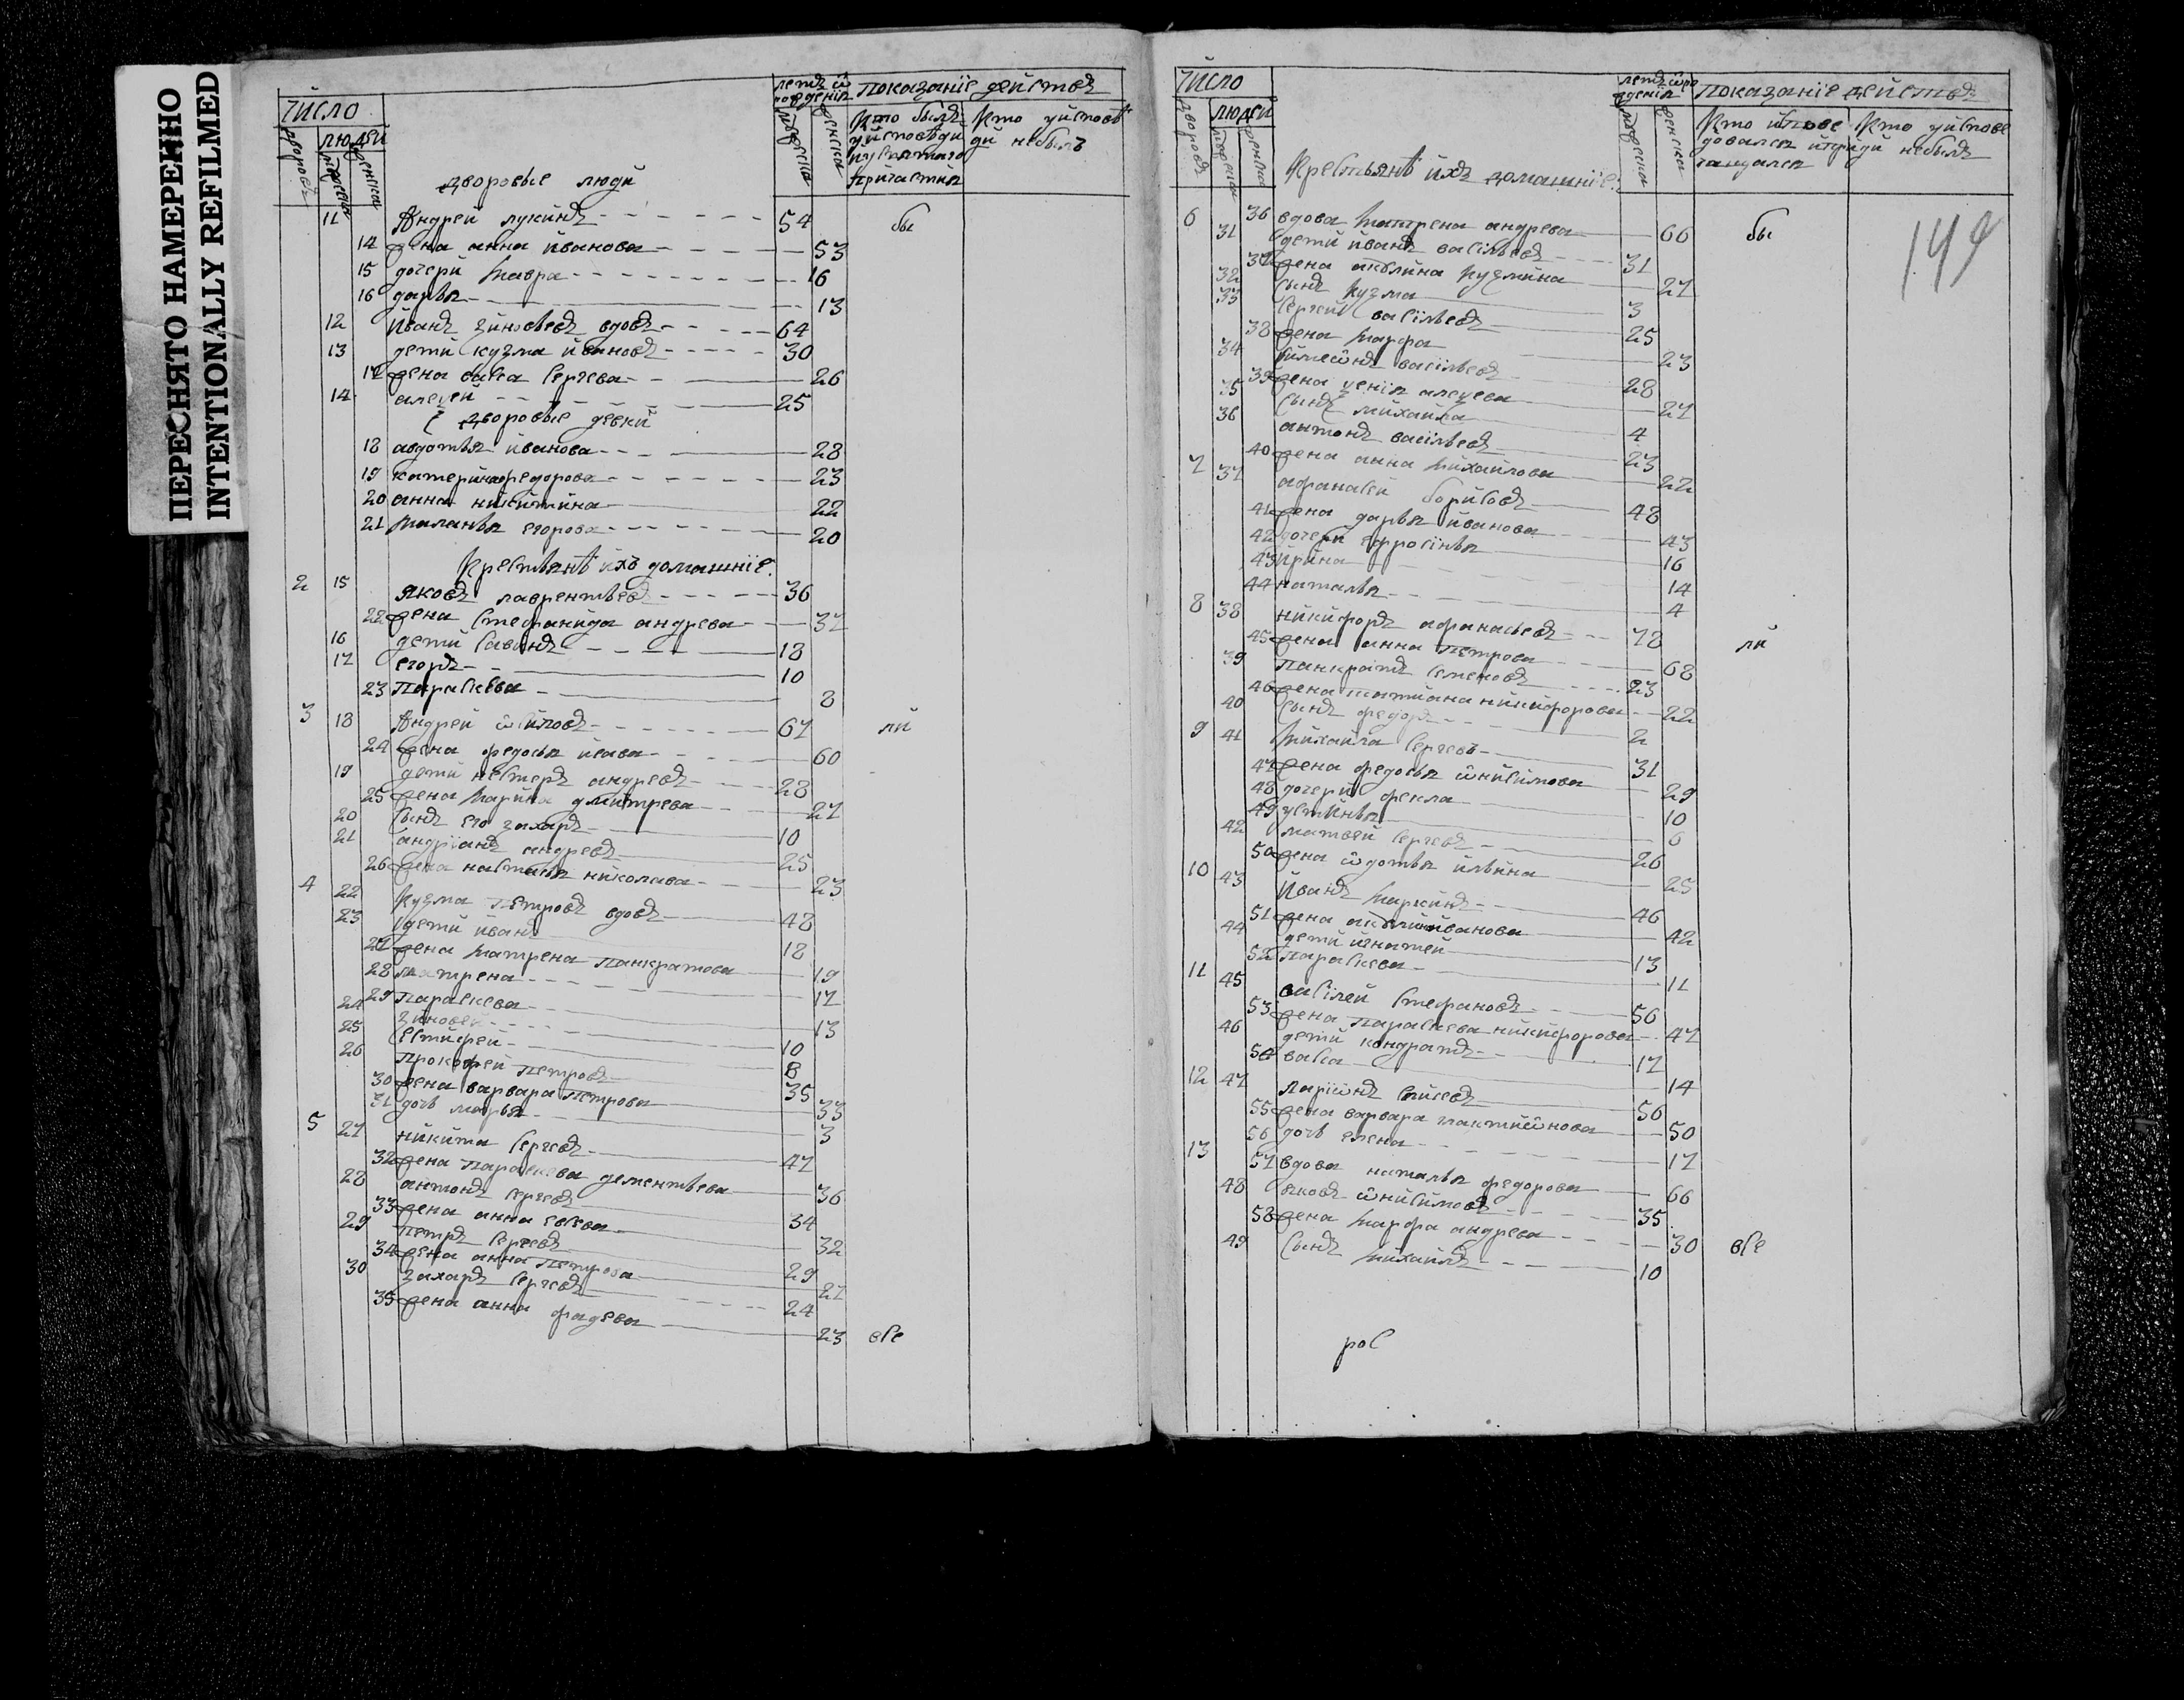 ПЕРЕСНЯТО НАМЕРЕННО
INTENTIONALLY REFILMED
число
людей
дворовъ
летъ ѿ рождения
показание действъ
Кто былъ у исповеди и у святаго причастия
Кто у исповеди не былъ
дворовые люди
11 Андрей лукинъ 54 бы
14 жена анна иванова 53
15 дочери Мавра 16
16 дарья 13
12 Иванъ зиновьевъ вдовъ 64
13 дети кузма ивановъ 30
17 жена васса сергева 26
14 алексей 25
дворовые девки
18 авдотья иванова 28
19 катерина федорова 23
20 анна никитина 22
21 Маланья егорова 20
Крестьянѣ ихъ домашние
2 15 яковъ лаврентьевъ 36
22 жена Стефанида андрева 37
16 дети савинъ 18
17 егоръ 10
23 Параскева 8
3 18 Андрей 67 ли
24 жена федосья исаева 60
19 дети нестеръ андревъ 28
25 жена Марина дмитрева 27
20 сынъ его захаръ 10
21 андрианъ андревъ 25
26 жена настасья николава 23
4 22 Кузма Петровъ вдовъ 48
23 дети иванъ 18
27 жена Матрена Панкратова 19
28 матрена 17
29 Параскева 13
24 зиновей 10
25 Естифей 8
26 Прокофей Петровъ 35
30 жена варвара Петрова 33
31 дочь марья 3
5 27 никита сергевъ 47
32 жена Параскева дементьева 36
28 антонъ сергевъ 34
33 жена анна евсева 32
29 Петръ сергевъ 29
34 жена анна Петрова 27
30 захаръ сергевъ 24
35 жена анна фадева 23 все
число
людей
дворовъ
летъ ѿ рождения
показание действъ
Кто исповедовался и причащался
Кто у исповеди не былъ
Крестьянѣ ихъ домашние
149
6 36 вдова Матрена андрева 66 бы
31 дети иванъ васильевъ 31
37 жена акулина кузмина 27
32 сынъ кузма 3
33 Сергей васильевъ 25
38 жена Марфа 23
34 симеонъ васильевъ 28
39 жена ксения алексева 27
35 сынъ михайла 4
36 антонъ васильевъ 23
40 жена анна Михайлова 22
7 37 афанасей борисовъ 48
41 жена дарья иванова 43
42 дочери ефросинья 16
43 ирина 14
44 наталья 4
8 38 никифоръ афанасьевъ 78 ли
45 жена анна Петрова 68
39 Панкратъ семеновъ 23
46 жена татиана никифорова 22
40 сынъ федоръ 2
9 41 Михайла сергевъ 31
47 жена федосья ѿнисимова 29
48 дочери фекла 10
49 устинья 6
42 матвей сергевъ 26
50 жена ѿдотья ильина 25
10 43 Иванъ Маркинъ 46
51 жена акулина иванова 42
44 дети игнатей 13
52 Параскева 11
11 45 василей Стефановъ 56
53 жена Параскева никифорова 47
46 дети кондратъ 17
54 васса 14
12 47 лариѿнъ 56
55 жена варвара галактиѿнова 50
56 дочь елена 17
13 57 вдова наталья федорова 66
48 яковъ ѿнисимовъ 35
58 жена Марфа андрева 30 все
49 сынъ Михайлъ 10
рос